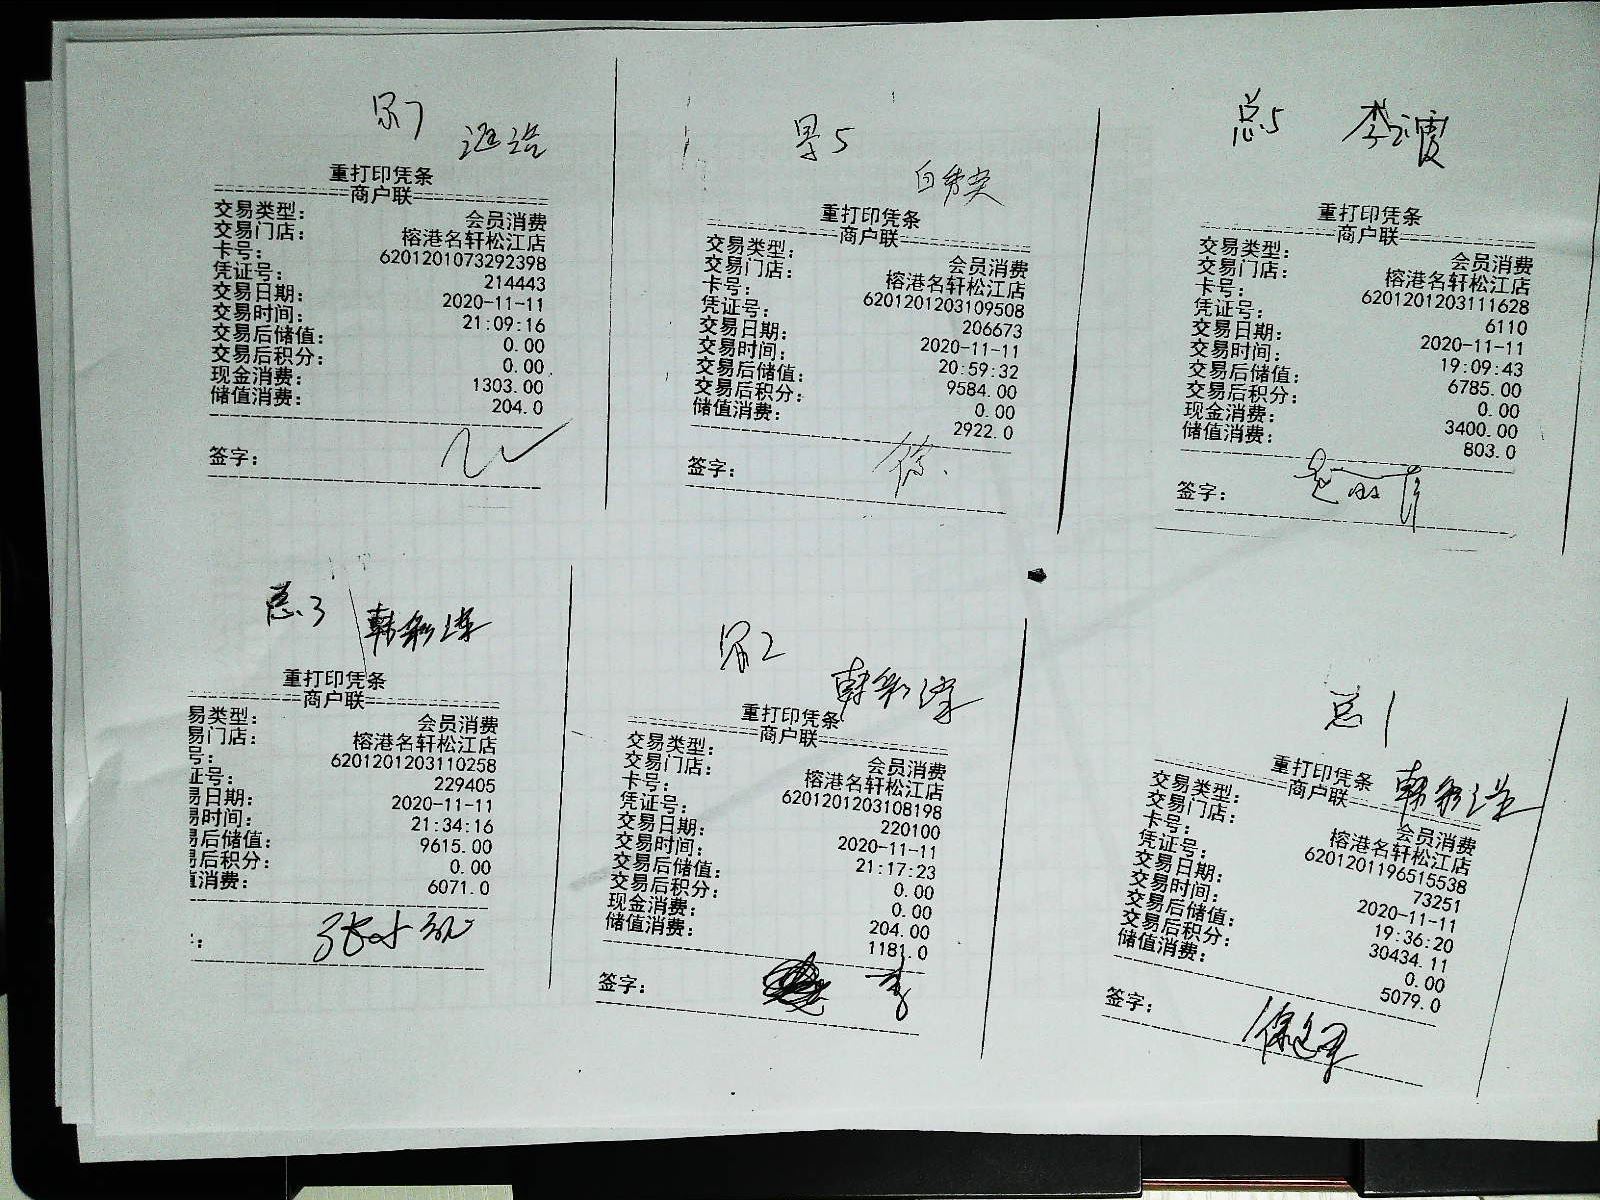 重打印凭条
商户联
交易类型: 会员消费
交易门店: 榕港名轩松江店
卡号: 6201201073292398
凭证号: 214443
交易日期: 2020-11-11
交易时间: 21:09:16
交易后储值: 0.00
交易后积分: 0.00
现金消费: 1303.00
储值消费: 204.0
签字:
5
白秀英
重打印凭条
商户联
交易类型: 会员消费
交易门店: 榕港名轩松江店
卡号: 6201201203109508
凭证号: 206673
交易日期: 2020-11-11
交易时间: 20:59:32
交易后储值: 9584.00
交易后积分: 0.00
储值消费: 2922.0
签字: 徐.
总5 李 霞
重打印凭条
商户联
交易类型: 会员消费
交易门店: 榕港名轩松江店
卡号: 6201201203111628
凭证号: 6110
交易日期: 2020-11-11
交易时间: 19:09:43
交易后储值: 6785.00
交易后积分: 0.00
现金消费: 3400.00
储值消费: 803.0
签字:
总3 韩
重打印凭条
商户联
易类型: 会员消费
易门店: 榕港名轩松江店
号: 6201201203110258
证号: 229405
易日期: 2020-11-11
易时间: 21:34:16
易后储值: 9615.00
易后积分: 0.00
值消费: 6071.0
:
2
韩
重打印凭条
商户联
交易类型: 会员消费
交易门店: 榕港名轩松江店
卡号: 6201201203108198
凭证号: 220100
交易日期: 2020-11-11
交易时间: 21:17:23
交易后储值: 0.00
交易后积分: 0.00
现金消费: 204.00
储值消费: 1181.0
签字: 李
总1
韩
重打印凭条
商户联
交易类型: 会员消费
交易门店: 榕港名轩松江店
卡号: 6201201196515538
凭证号: 73251
交易日期: 2020-11-11
交易时间: 19:36:20
交易后储值: 30434.11
交易后积分: 0.00
储值消费: 5079.0
签字: 徐